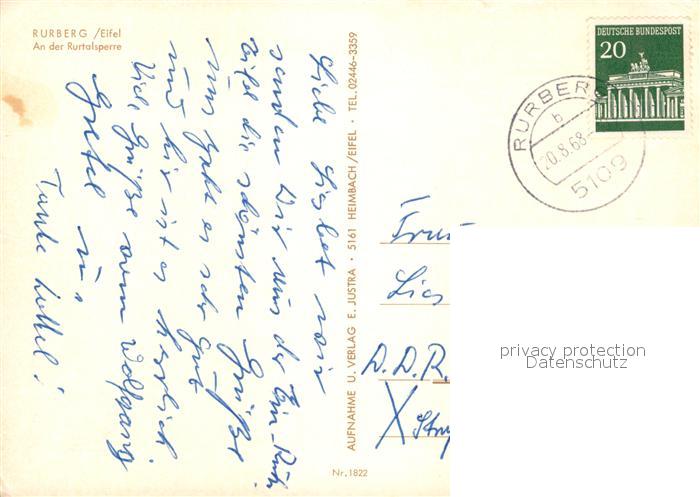 RURBERG /Eifel
An der Rurtalsperre
Liebe Lisbet wir
senden Dir aus der
Eifel die schönsten Grüße
uns geht es sehr gut
und hier ist es herrlich
Viele Grüße vom Wolfgang
u.
Tante
AUFNAHME U. VERLAG E. JUSTRA · 5161 HEIMBACH/EIFEL · TEL. 02446-3359
Nr. 1822
DEUTSCHE BUNDESPOST
20
RURBERG
b
20.8.68
5109
Lies
D.D.R.
X
privacy protection
Datenschutz